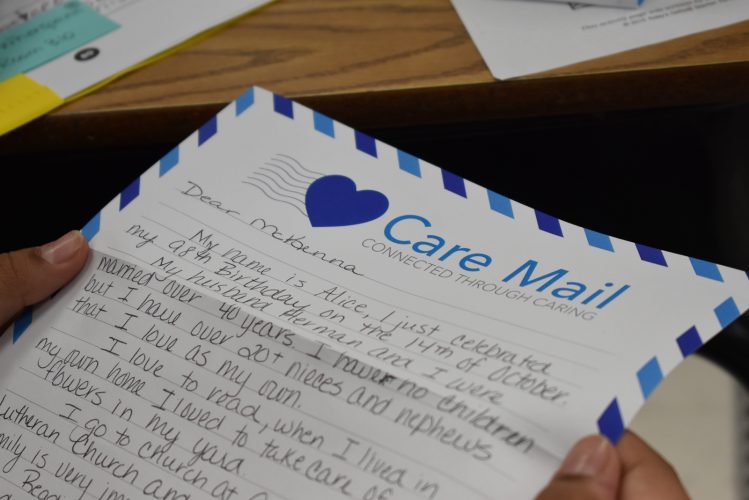 Room 310
Care Mail
CONNECTED THROUGH CARING
Dear McKenna
My name is Alice, I just celebrated
my 98th Birthday on the 14th of October.
My husband Herman and I were
married over 40 years I have no children
but I have over 20+ nieces and nephews
that I love as my own.
I love to road, when I lived in
my own home I loved to take care of
flowers in my yard
I go to church at
Lutheran Church and
is very